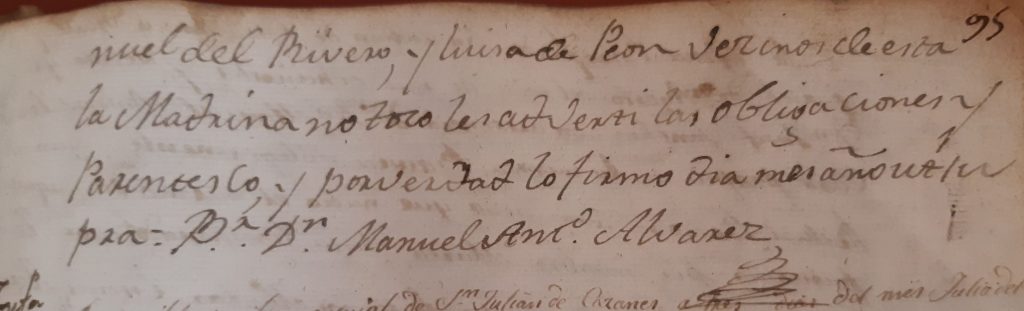 95
nuel del Rivero, y luisa de Peon Vezinos de esta
la Madrina no toco les adverti las obligaciones y
Parentesco, y por verdad lo firmo dia mes año ut su
pra = Dr. Dn Manuel Anto. Alvarez
de Sn Julian de del mes Julio del